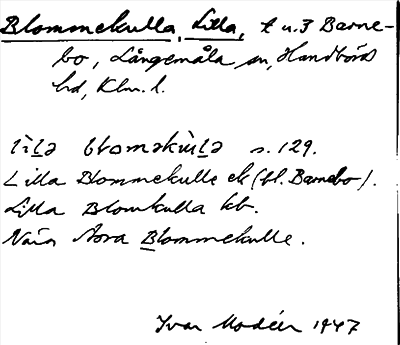 Blommekulla, Lilla, t u. 3 Barne-
bo, Långemåla sn, Handbörds
hd, Klm. l.
lìlə bloməkùlə s. 129.
Lilla Blommekulle ek (bl. Barnebo).
Lilla Blomkulla kb.
Nära Stora Blommekulle.
Ivar Modéer 1947